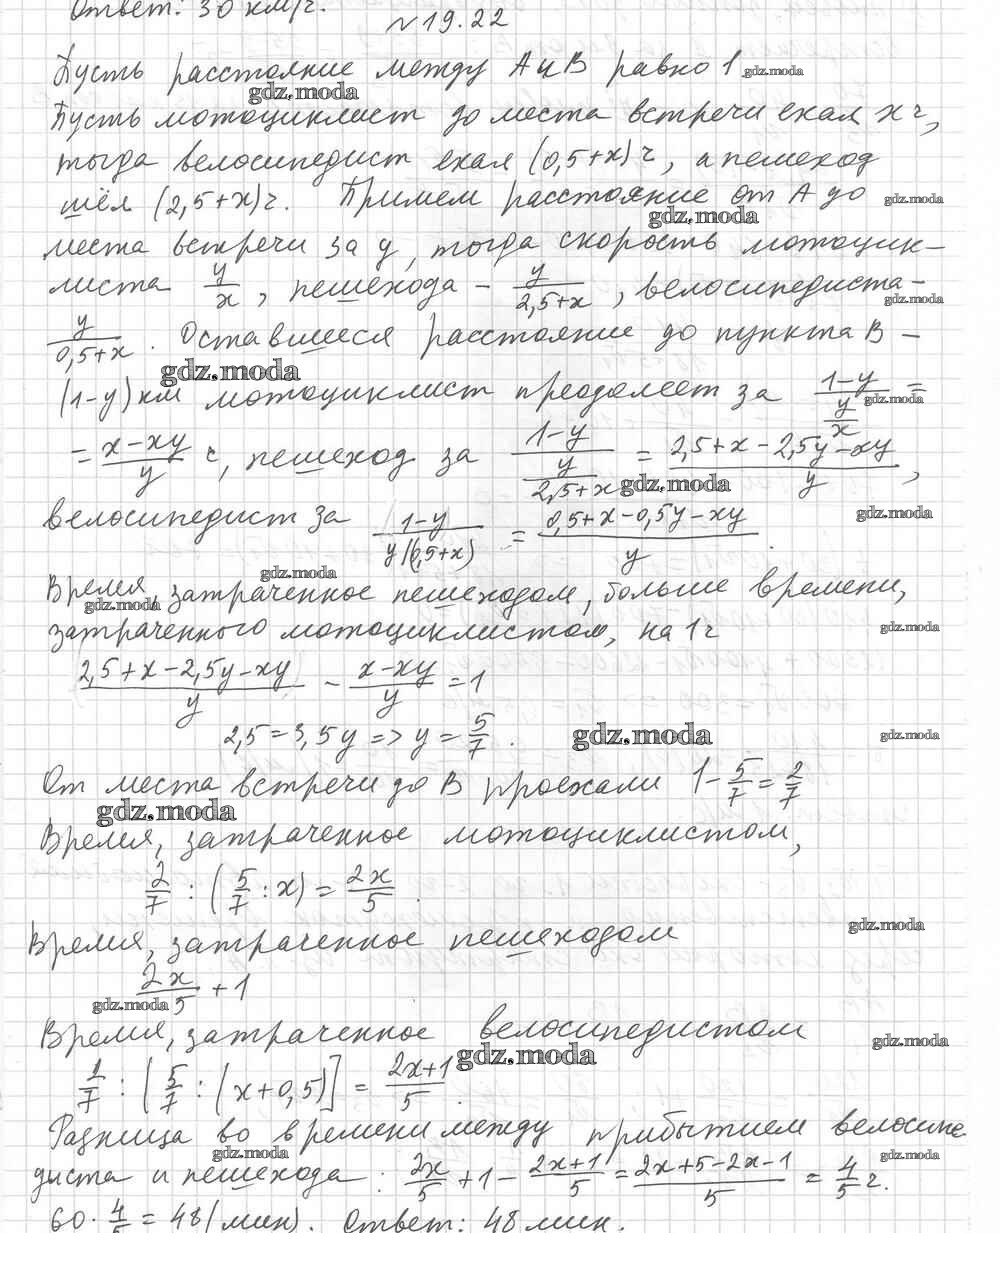 Ответ: 30 км/ч.
№19.22
Пусть расстояние между А и В равно 1.
gdz.moda
gdz.moda
Пусть мотоциклист до места встречи ехал x ч,
тогда велосипедист ехал (0,5+x) ч, а пешеход
шёл (2,5+x) ч. Примем расстояние от А до
gdz.moda
gdz.moda
места встречи за y, тогда скорость мотоцик-
листа y/x, пешехода - y/(2,5+x), велосипедиста -
gdz.moda
y/(0,5+x). Оставшееся расстояние до пункта В -
gdz.moda
(1-y) км мотоциклист преодолеет за (1-y)/(y/x) =
gdz.moda
= (x-xy)/y ч, пешеход за (1-y)/(y/(2,5+x)) = (2,5+x-2,5y-xy)/y,
gdz.moda
велосипедист за (1-y)/(y/(0,5+x)) = (0,5+x-0,5y-xy)/y.
gdz.moda
gdz.moda
Время, затраченное пешеходом, больше времени,
gdz.moda
затраченного мотоциклистом, на 1 ч
gdz.moda
(2,5+x-2,5y-xy)/y - (x-xy)/y = 1
2,5=3,5y => y = 5/7.
gdz.moda
gdz.moda
От места встречи до В проехали 1-5/7=2/7
gdz.moda
Время, затраченное мотоциклистом,
2/7 : (5/7 : x) = 2x/5.
gdz.moda
Время, затраченное пешеходом
2x/5 + 1
gdz.moda
Время, затраченное велосипедистом
gdz.moda
gdz.moda
2/7 : [5/7 : (x+0,5)] = (2x+1)/5.
Разница во времени между прибытием велосипе
gdz.moda
gdz.moda
диста и пешехода: 2x/5 + 1 - (2x+1)/5 = (2x+5-2x-1)/5 = 4/5 ч.
60 · 4/5 = 48 (мин). Ответ: 48 мин.